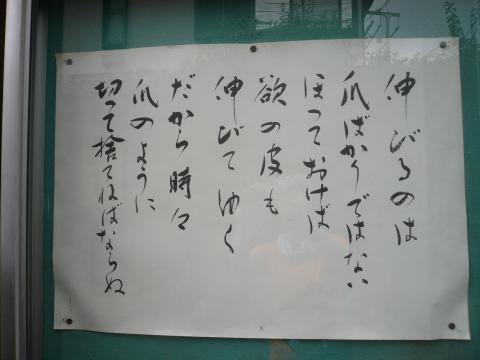 伸びるのは
爪ばかりではない
ほっておけば
欲の皮も
伸びてゆく
だから時々
爪のように
切って捨てねばならぬ